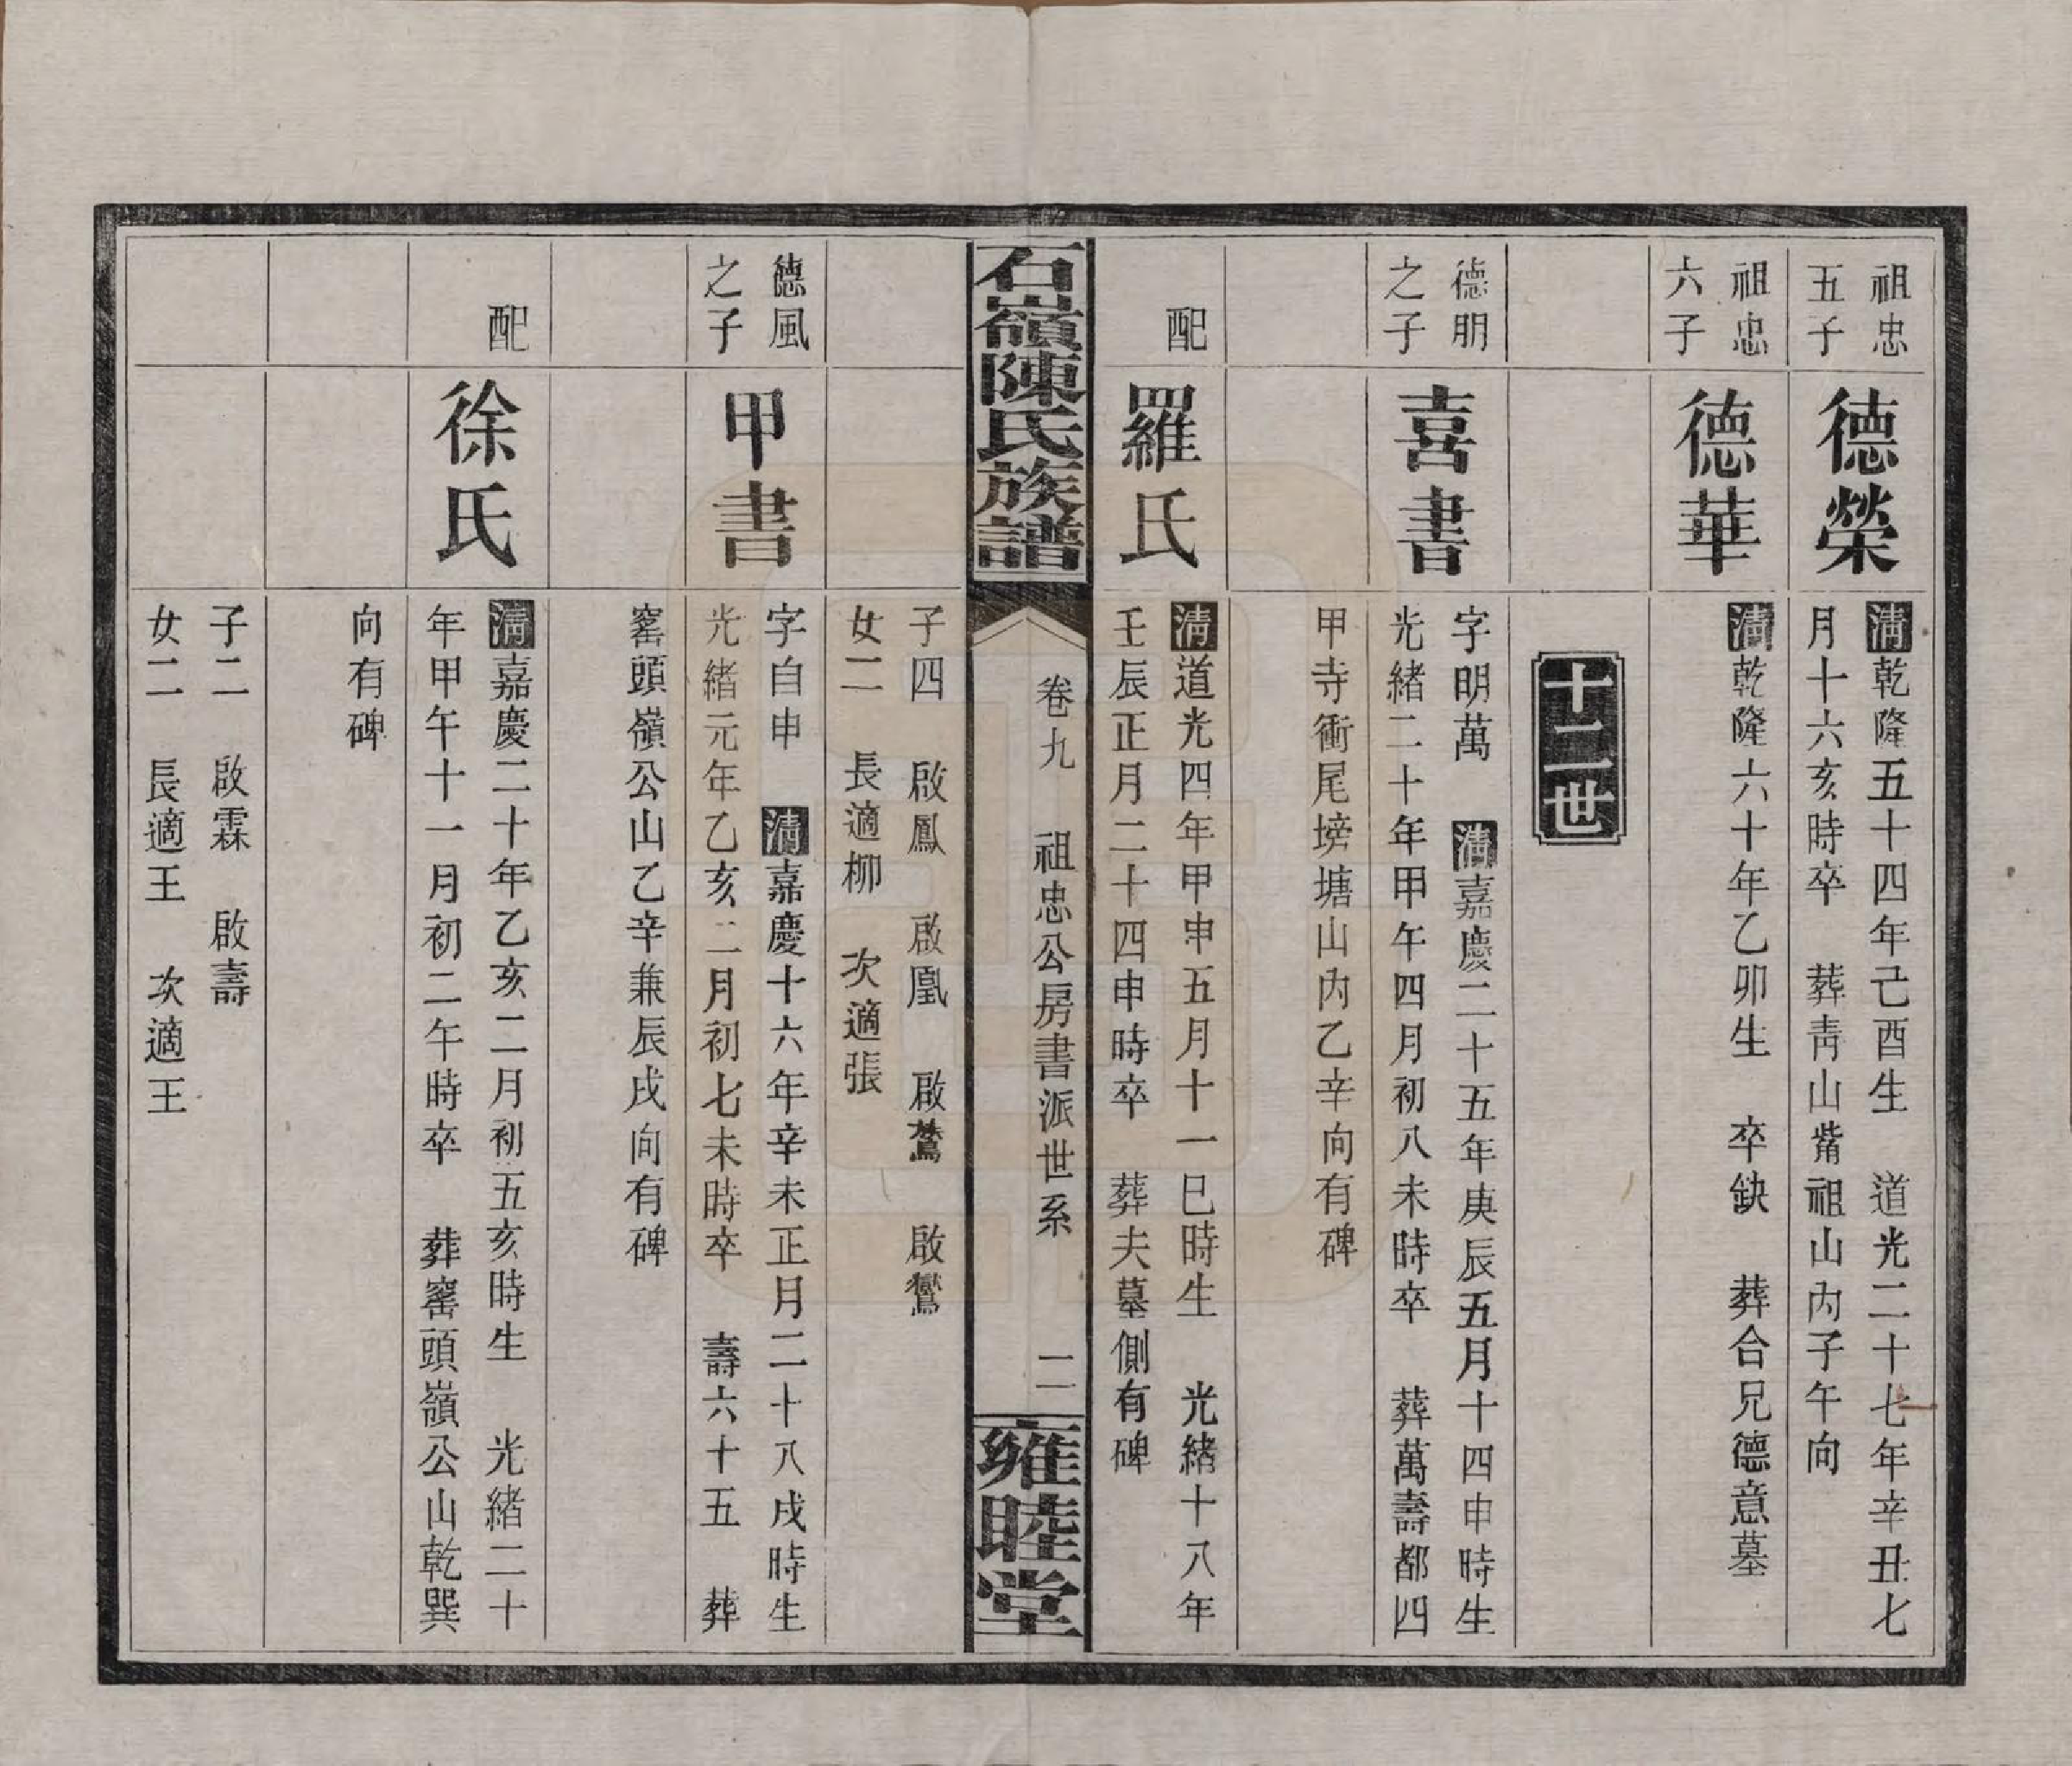 祖忠
五子
德榮
清乾隆五十四年己酉生　道光二十七年辛丑七
月十六亥時卒　葬靑山觜祖山內子午向
祖忠
六子
德華
清乾隆六十年乙卯生　卒缺　葬合兄德意墓
十二世
德朋
之子
喜書
字明萬　清嘉慶二十五年庚辰五月十四申時生
光緒二十年甲午四月初八未時卒　葬萬壽都四
甲寺衝尾塝塘山內乙辛向有碑
配
羅氏
清道光四年甲申五月十一巳時生　光緒十八年
壬辰正月二十四申時卒　葬夫墓側有碑
石嶺陳氏族譜
卷九　祖忠公房書派世系　二
雍睦堂
子四　啟鳳　啟凰　啟鶩　啟鸞
女二　長適柳　次適張
德風
之子
甲書
字自申　清嘉慶十六年辛未正月二十八戌時生
光緒元年乙亥二月初七未時卒　壽六十五　葬
窰頭嶺公山乙辛兼辰戌向有碑
配
徐氏
清嘉慶二十年乙亥二月初五亥時生　光緒二十
年甲午十一月初二午時卒　葬窰頭嶺公山乾巽
向有碑
子二　啟霖　啟壽
女二　長適王　次適王